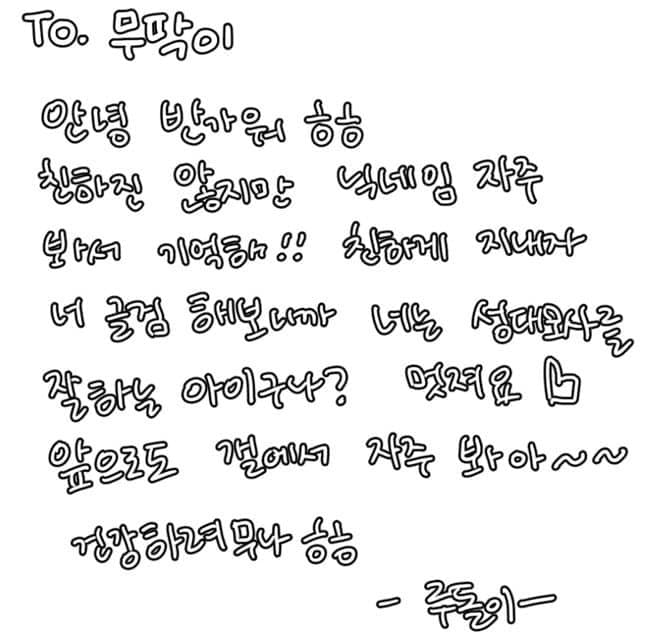 To. 무딱이
안녕 반가워 흐흐
친하진 않지만 닉네임 자주
봐서 기억해!! 친하게 지내자
너 글검 해보니까 너는 성대모사를
잘하는 아이구나? 멋져요
앞으로도 갤에서 자주 봐아~~
건강하려무나 흐흐
- 루돌이 -